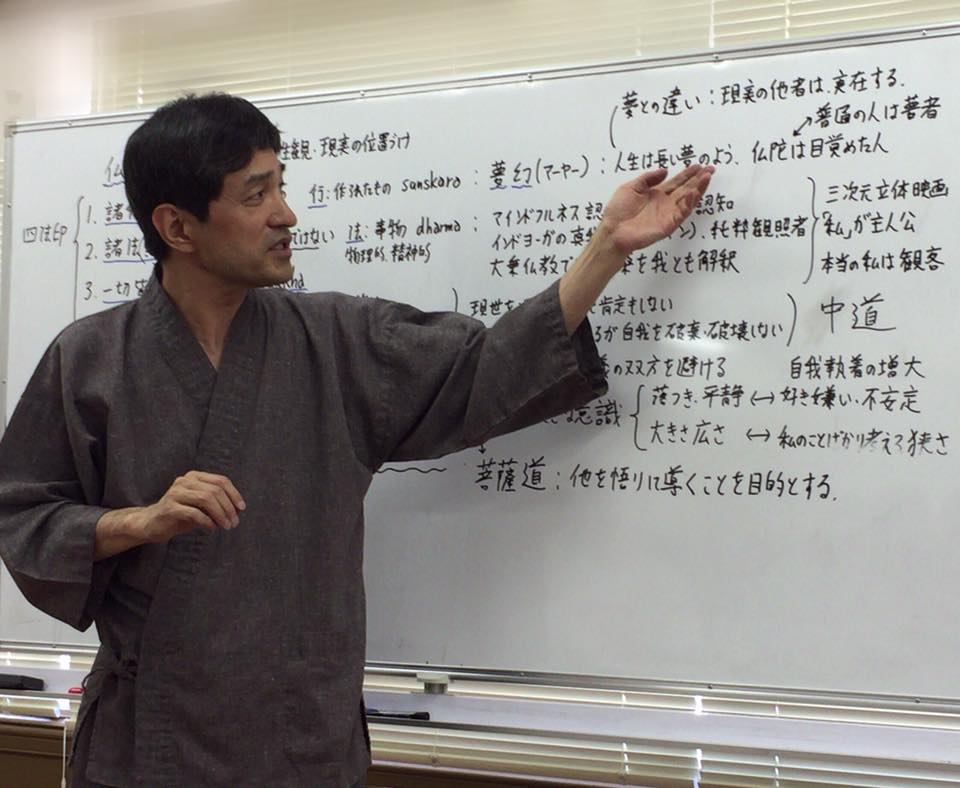 夢との違い：現実の他者は、実在する。
普通の人は著者
仏 発見・現実の位置づけ
行：作られたもの sanskara：夢幻(マーヤー)：人生は長い夢のよう、仏陀は目覚めた人
四法印
1. 諸
2. 諸法 ではない 法：事物 dharma：マインドフルネス 認知
物理的、精神的 インドヨーガの真我 ン)、純粋観照者
大乗仏教で を我とも解釈
三次元立体映画
「私」が主人公
本当の私は観客
3. 一切
現世を 肯定もしない
が自我を破棄・破壊しない
の双方を避ける
中道
自我執着の増大
意識
落つき、平静 ↔ 好き嫌い・不安定
大きさ広さ ↔ 私のことばかり考える狭さ
菩薩道：他を悟りに導くことを目的とする。